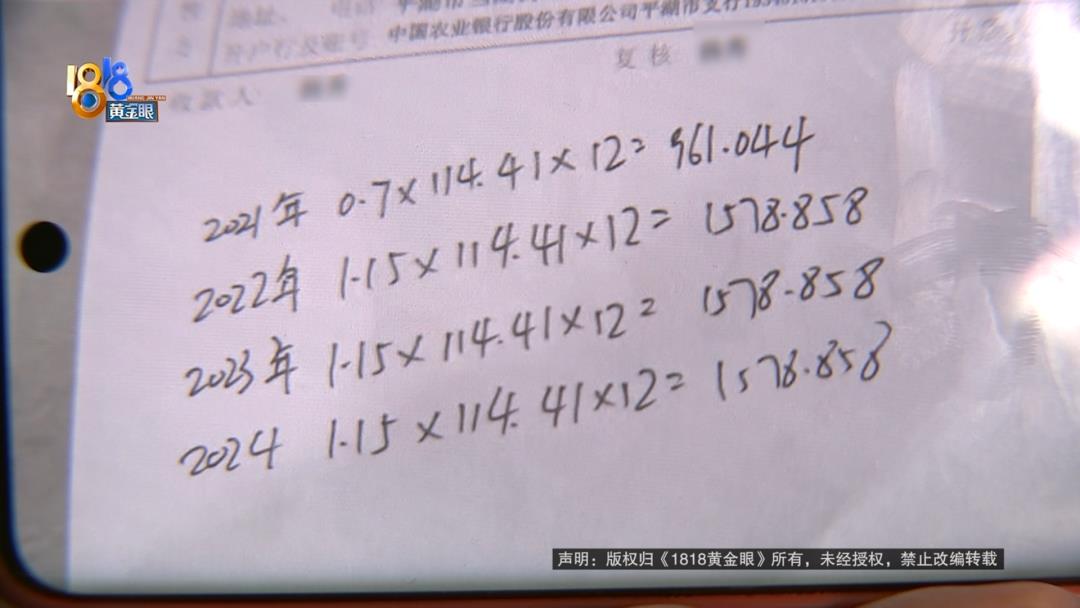 地址、电话
中国农业银行股份有限公司平湖市支行
开户行及账号
复核
1818
黄金眼
收款人
2021年 0.7×114.41×12= 961.044
2022年 1.15×114.41×12= 1578.858
2023年 1.15×114.41×12= 1578.858
2024 1.15×114.41×12= 1578.858
声明：版权归《1818黄金眼》所有，未经授权，禁止改编转载